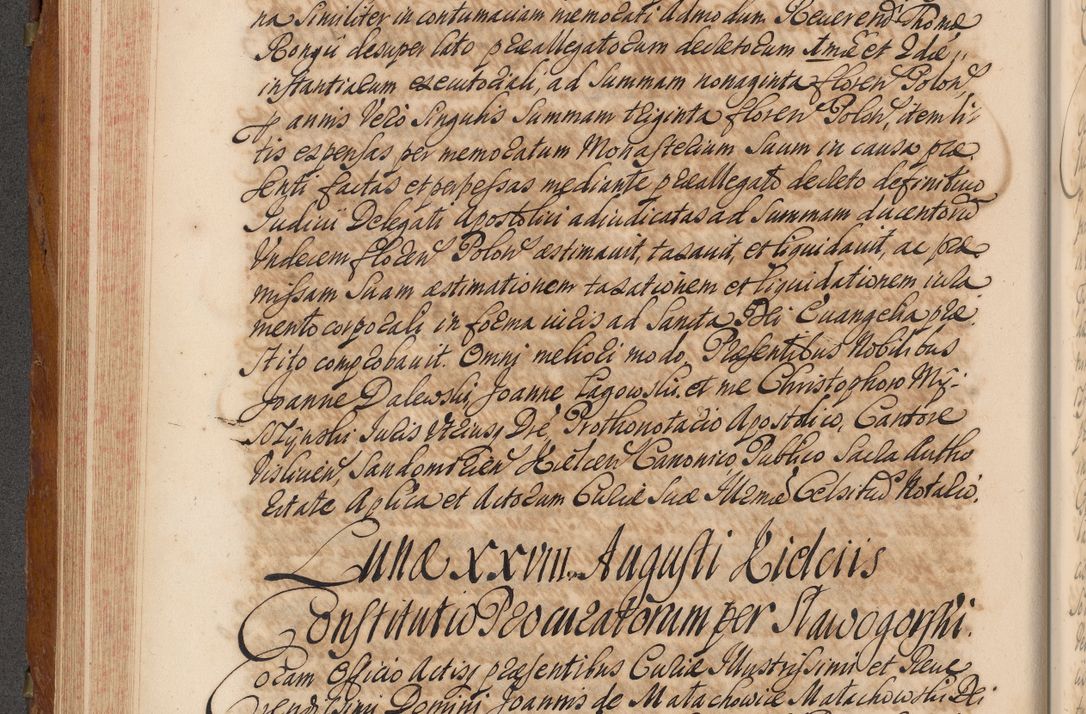 na Similiter in contumaciam memorati Admodum Reuerendi Thomæ
Rongii desuper lato præallegatorum decretorum 1mæ et 2dæ
instantiarum executoriali, ad Summam nonaginta floren Polon,
annis Vero Singulis Summam triginta floren Polon, item li-
tis expensas per memoratum Monasterium Suum in causa præ
senti factas et perpessas mediante præallegato decreto definitiuo
Iudicii Delegati Apostolici adiudicatas ad Summam ducentorum
Vndecem floren Polon æstimauit, taxauit, et liquidauit, ac præ
missam Suam æstimationem taxationem et liquidationem iura
mento corporali in forma iuris ad Sancta Dei Euangelia præ
stito comprobauit. Omni meliori modo, Præsentibus Nobilibus
Joanne Dalewski, Joanne Łagowski, et me Christophoro My-
szyński Iuris Vtriusq Dre, Prothonotario Apostolico, Cantore
Vislicen, Sandomirien Kielcen Canonico Publico Sacra Autho
ritate Aplica et Actorum Curiæ Suæ Illmæ Celsitud Notario.
Lunæ XXVIII Augusti Kielciis
Constitutio Procuratorum per Sławogorski.
Coram Officio Actisq præsentibus Curiæ Illustrissimi et Reue
rendissimi Domini Joannis de Małachowice Małachowski Dei